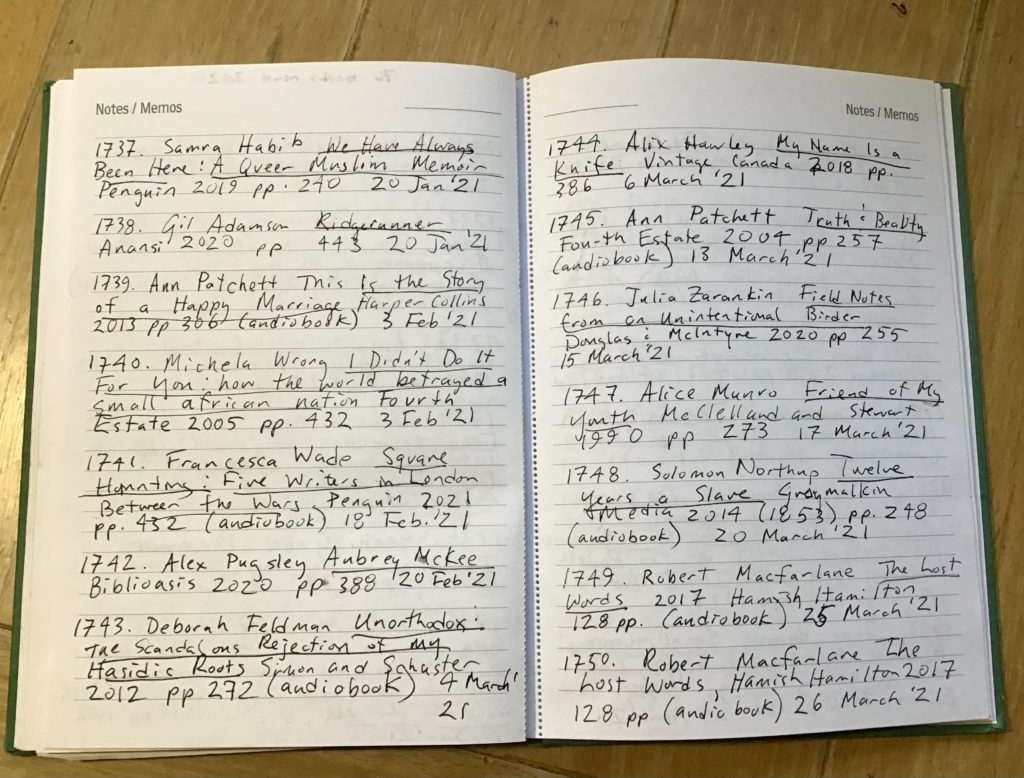 Notes / Memos
1737. Samra Habib We Have Always
Been Here: A Queer Muslim Memoir
Penguin 2019 pp. 270 20 Jan '21
1738. Gil Adamson Ridgerunner
Anansi 2020 pp 443 20 Jan '21
1739. Ann Patchett This Is the Story
of a Happy Marriage Harper Collins
2013 pp 306 (audiobook) 3 Feb '21
1740. Michela Wrong I Didn't Do It
For You: how the world betrayed a
small african nation Fourth
Estate 2005 pp. 432 3 Feb '21
1741. Francesca Wade Square
Haunting: Five Writers in London
Between the Wars Penguin 2021
pp. 432 (audiobook) 18 Feb. '21
1742. Alex Pugsley Aubrey McKee
Biblioasis 2020 pp 388 20 Feb '21
1743. Deborah Feldman Unorthodox:
The Scandalous Rejection of My
Hasidic Roots Simon and Schuster
2012 pp 272 (audiobook) 4 March '
21
Notes / Memos
1744. Alix Hawley My Name Is a
Knife Vintage Canada 2018 pp.
386 6 March '21
1745. Ann Patchett Truth & Beauty
Fourth Estate 2004 pp 257
(audiobook) 13 March '21
1746. Julia Zarankin Field Notes
from an Unintentional Birder
Douglas & McIntyre 2020 pp 255
15 March '21
1747. Alice Munro Friend of My
Youth McClelland and Stewart
1990 pp 273 17 March '21
1748. Solomon Northup Twelve
Years a Slave Graymalkin
Media 2014 (1853) pp. 248
(audiobook) 20 March '21
1749. Robert Macfarlane The Lost
Words 2017 Hamish Hamilton
128 pp. (audiobook) 25 March '21
1750. Robert Macfarlane The
Lost Words, Hamish Hamilton 2017
128 pp (audio book) 26 March '21